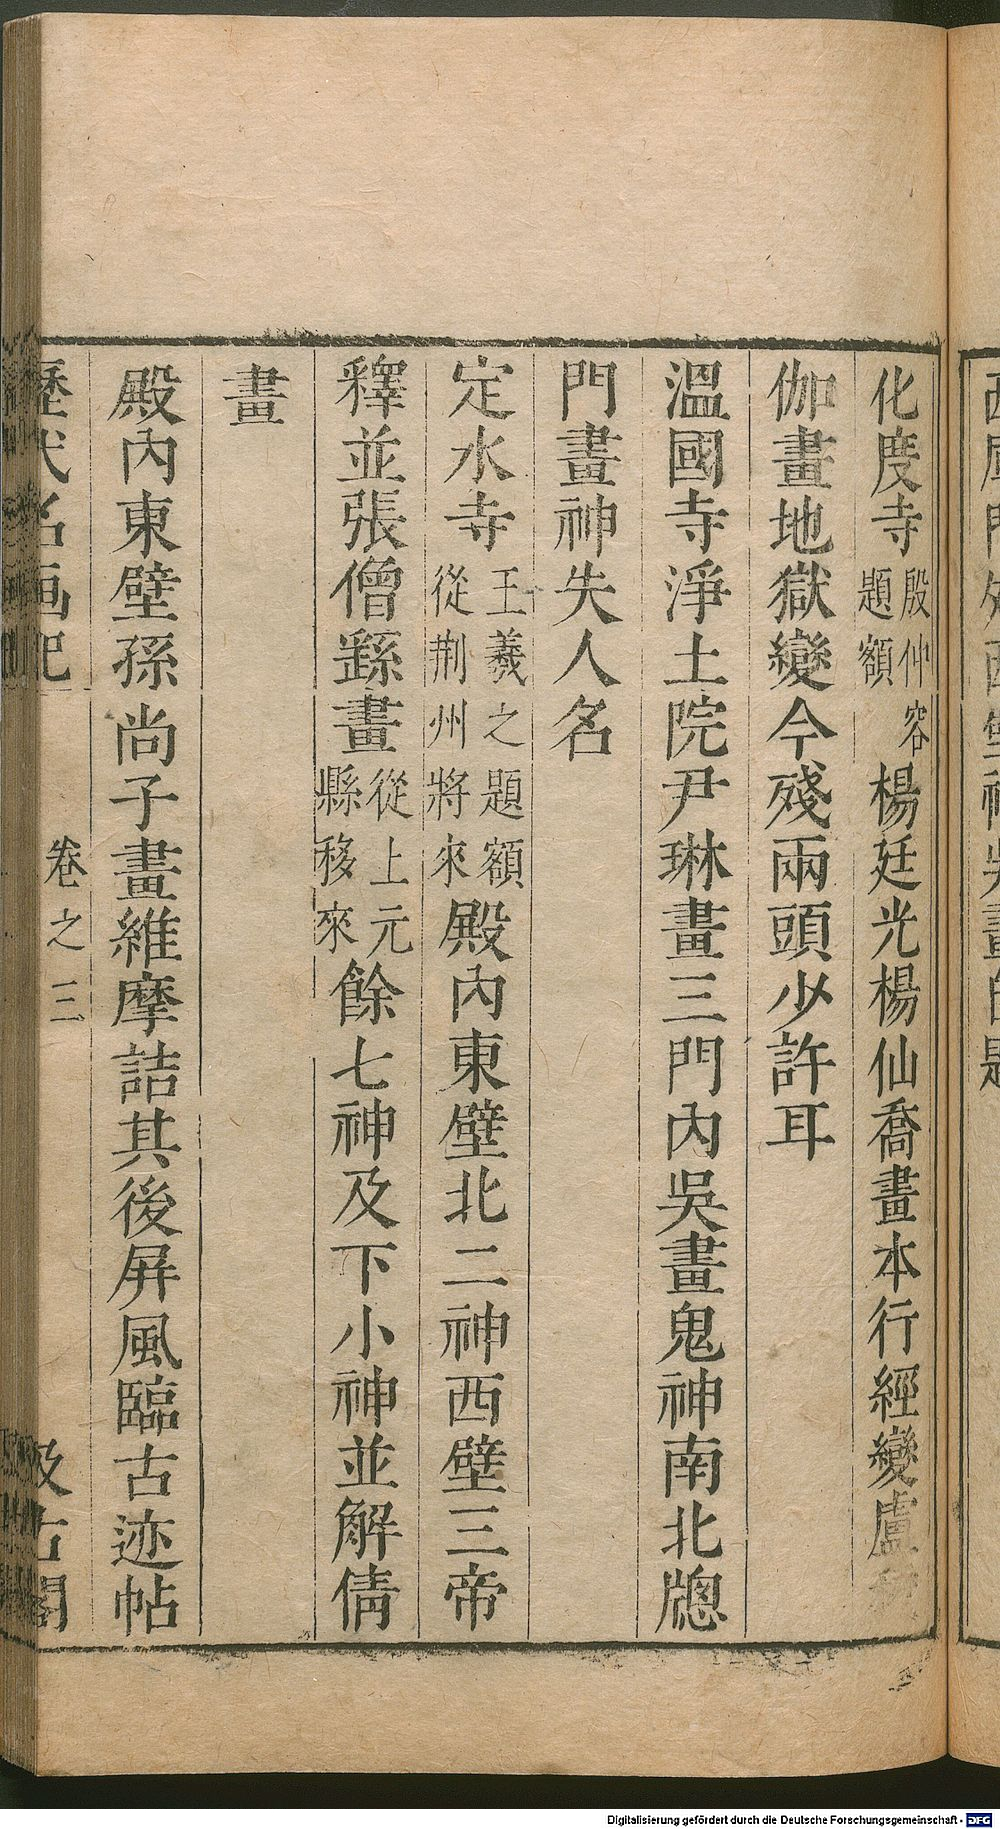 化度寺殷仲容題額楊廷光楊仙喬畫本行經變盧
伽畫地獄變今殘兩頭少許耳
溫國寺淨土院尹琳畫三門內吳畫鬼神南北牕
門畫神失人名
定水寺王羲之題額從荆州將來殿內東壁北二神西壁三帝
釋並張僧繇畫從上元縣移來餘七神及下小神並解倩
畫
殿內東壁孫尚子畫維摩詰其後屏風臨古迹帖
歷代名画記 卷之三 汲古閣
Digitalisierung gefördert durch die Deutsche Forschungsgemeinschaft - DFG